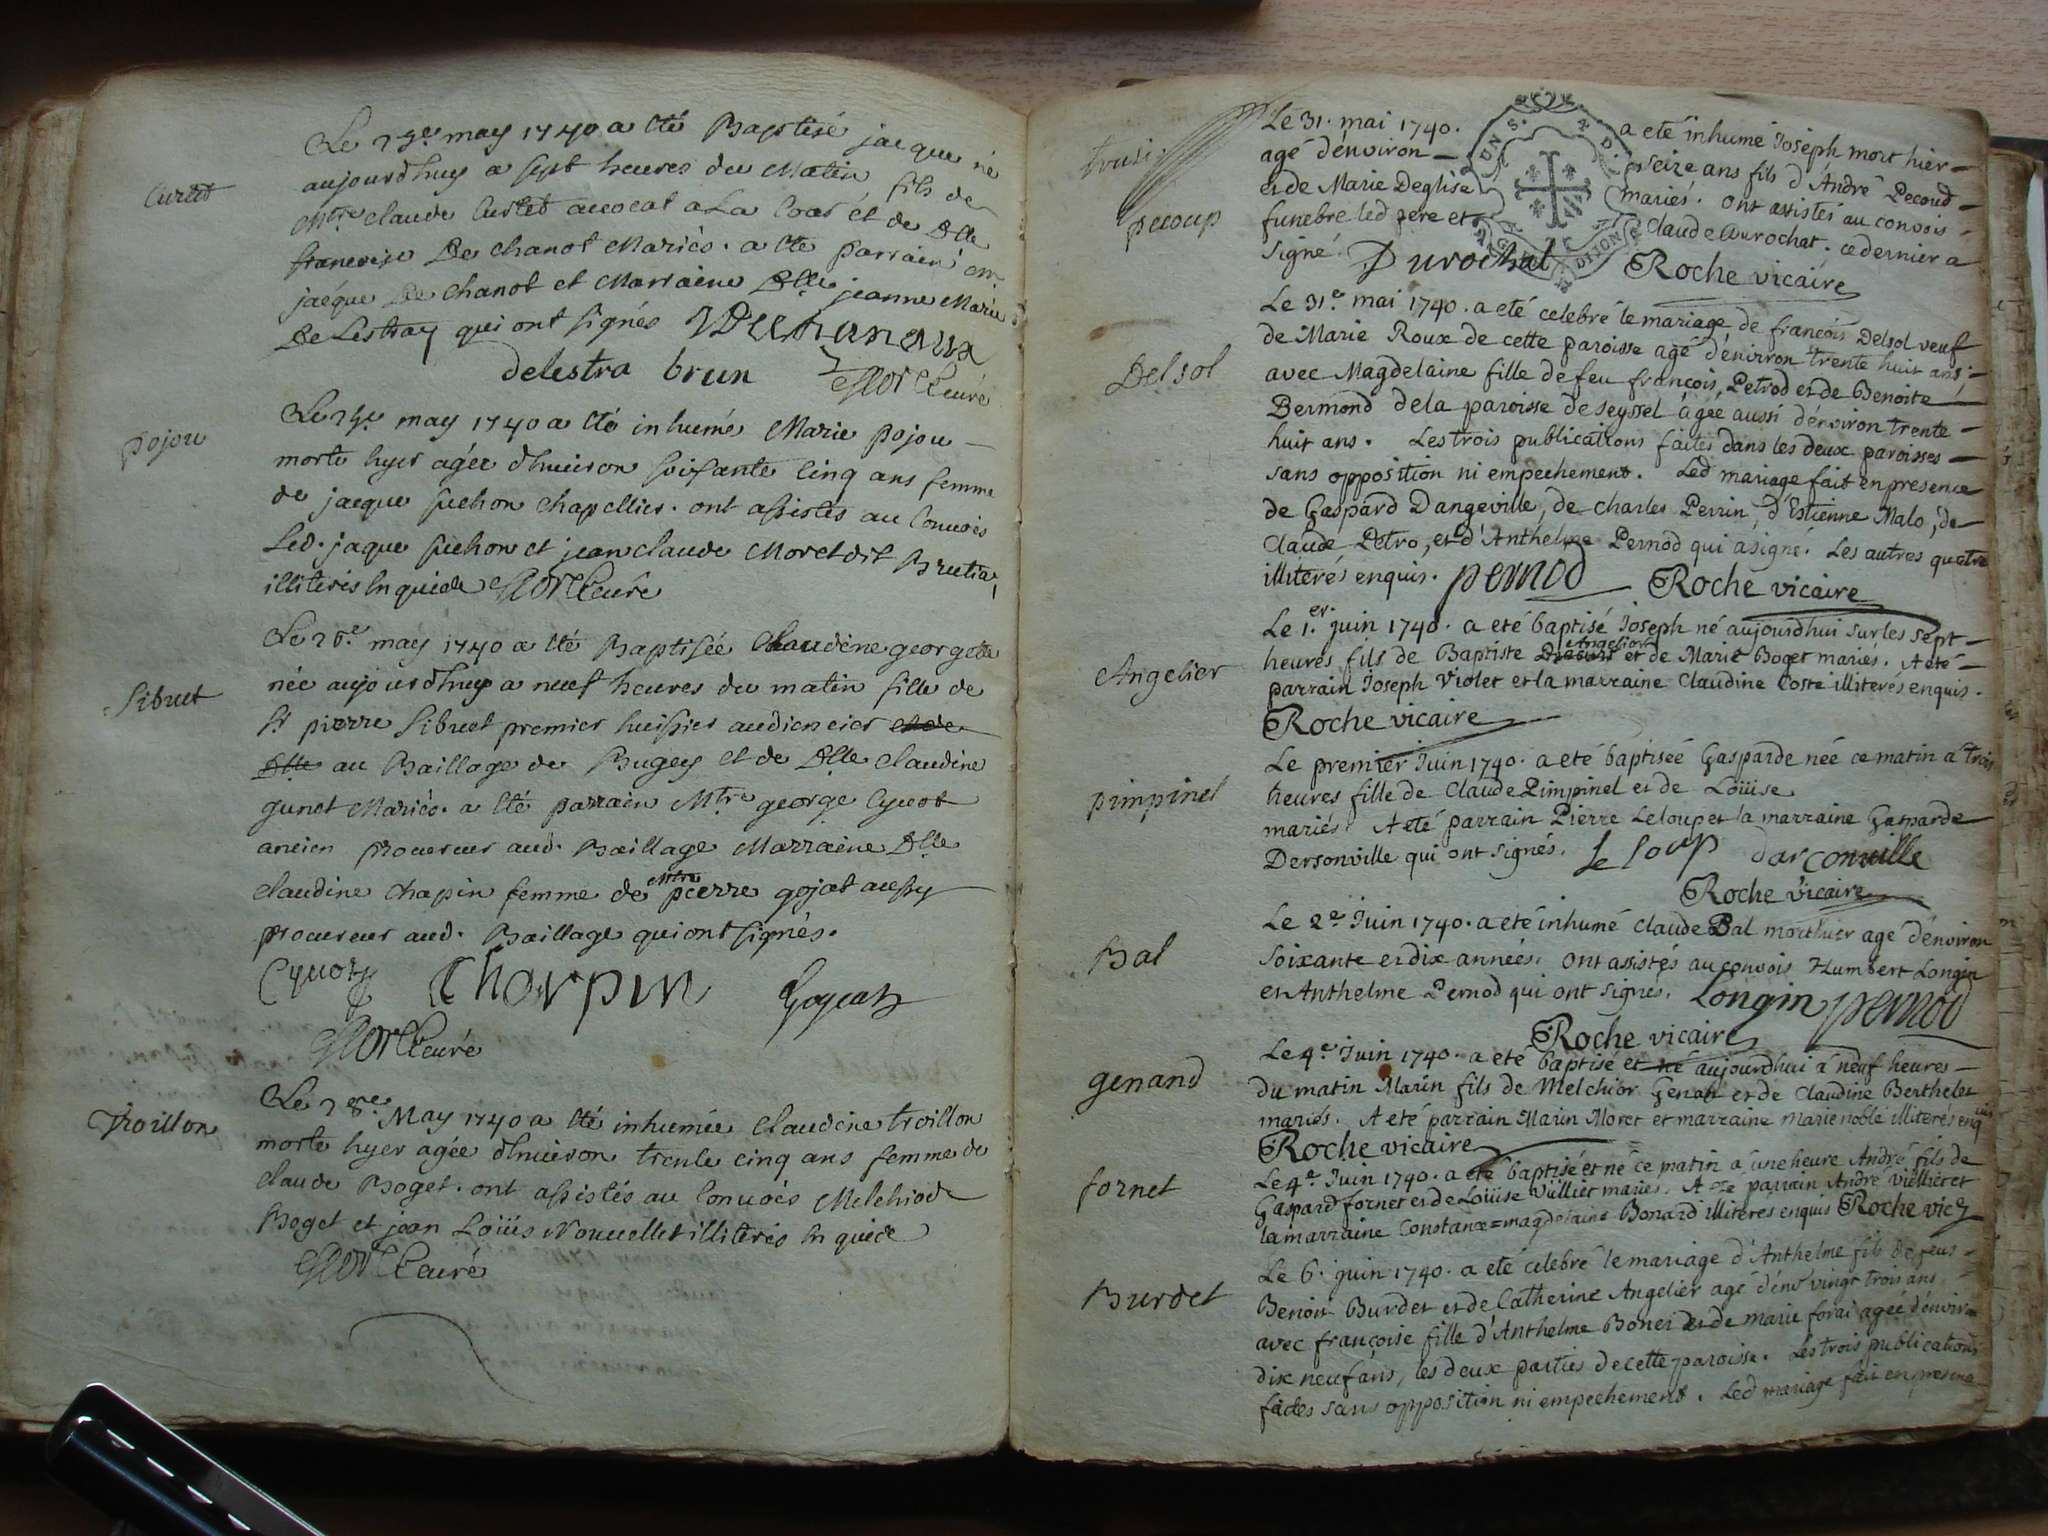 Curtet
Le 23e may 1740 a été Baptisé jacque né
aujourdhuy a sept heures du Matin fils de
Mtre claude Curtet avocat a La Cour et de Dlle
francoise De chanot Mariés. a été parrain
jacque De chanot et Marraine Dlle jeanne Marie
De Lestray qui ont signés
delestra brun curé
pojou
Le may 1740 a été inhumée Marie pojou
morte hyer agée dhuiron soixante Cinq ans femme
de jacque suchon chapellier. ont assistes au Convois
Led. jaque suchon et jean claude Moret dit
illiterés Enquide curé
Sibuet
Le may 1740 a été Baptisée Claudine georgette
née aujourdhuy a neuf heures du matin fille de
Sr pierre Sibuet premier huissier audiencier et de
Dlle au Baillage de Bugey et de Dlle claudine
gunet Mariés. a été parrain Mtre george Cyvot
ancien procureur aud. Baillage Marraine Dlle
claudine chapin femme de Mtre pierre gojat aussy
procureur aud. Baillage qui ont signés.
Cyvot Charpin Gojat
curé
Troillon
Le 28e May 1740 a été inhumée Claudine troillon
morte hyer agée dhuiron trente cinq ans femme de
claude Boget. ont assistés au Convois Melchiod
Boget et jean Loüis Nouvellet illiterés Enquide
curé
pecoup
Le 31. mai 1740. a eté inhumé Joseph mort hier
agé d'environ seize ans fils d'André Pecoud
et de Marie Deglise mariés. ont assistés au convois
funebre led pere et Claude Durochat; ce dernier a
signé. Durochat Roche vicaire
Delsol
Le 31e mai 1740. a eté celebré le mariage de francois Delsol veuf
de Marie Roux de cette paroisse agé d'environ trente huit ans;
avec Magdelaine fille de feu francois Petrod et de Benoite
Bermond de la paroisse de seyssel agée aussi d'environ trente
huit ans. Les trois publications faites dans les deux paroisses
sans opposition ni empechement. Led mariage fait en presence
de Gaspard Dangeville, de charles Perrin, d'Estienne Malo, de
Claude Petro, et d'Anthelme Pernod qui a signé. Les autres quatre
illiterés enquis. pernod Roche vicaire
Angelier
Le 1.er juin 1740. a eté baptisé Joseph né aujourdhui sur les sept
heures fils de Baptiste Angelier et de Marie Boget mariés. A eté
parrain Joseph Violet et la marraine Claudine Coste illiterés enquis.
Roche vicaire
pimpinel
Le premier Juin 1740. a eté baptiseé Gasparde née ce matin a trois
heures fille de Claude Pimpinel et de Loüise
mariés. A eté parrain Pierre Leloup et la marraine Gasparde
Dersonville qui ont signés. Le loup darconville
Roche vicaire
Bal
Le 2e Juin 1740. a eté inhumé Claude Bal mort hier agé d'environ
soixante et dix années. Ont assistés au convois Humbert Longin
et Anthelme Pernod qui ont signés. Longin pernod
Roche vicaire
genand
Le 4e Juin 1740. a eté baptisé et né aujourdhui a neuf heures
du matin Marin fils de Melchior Genan et de Claudine Berthelet
mariés. A eté parrain Marin Moret et marraine Marie noble illiterés enquis
Roche vicaire
fornet
Le 4e Juin 1740. a eté baptisé et né ce matin a une heure André fils de
Gaspard fornet et de Loüise Viellièt mariés. A eté parrain André vielliet et
la marraine Constance=magdelaine Bonard illiterés enquis Roche vic
Burdet
Le 6. juin 1740. a eté celebré le mariage d'Anthelme fils de feus
Benoit Burdet et de Catherine Angelier agé d'env vingt trois ans
avec françoise fille d'Anthelme Bonei et de marie forai ageé d'environ
dix neuf ans, les deux parties de cette paroisse. Les trois publications
faites sans opposition ni empechement. Led mariage fait en presence